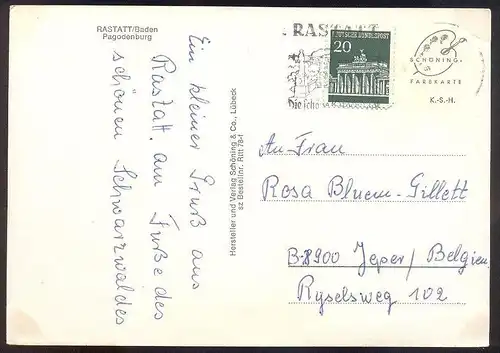 RASTATT/Baden
Pagodenburg
Ein kleiner Gruß aus
Rastatt am Fuße des
schönen Schwarzwaldes
Hersteller und Verlag Schöning & Co., Lübeck
sz Bestellnr. Ritt 78-f
RASTATT
DEUTSCHE BUNDESPOST
20
Die schö
SCHÖNING-
FARBKARTE
K.-S.-H.
An Frau
Rosa Bluem-Gillett
B-8900 Jeper/Belgien
Ryselsweg 102